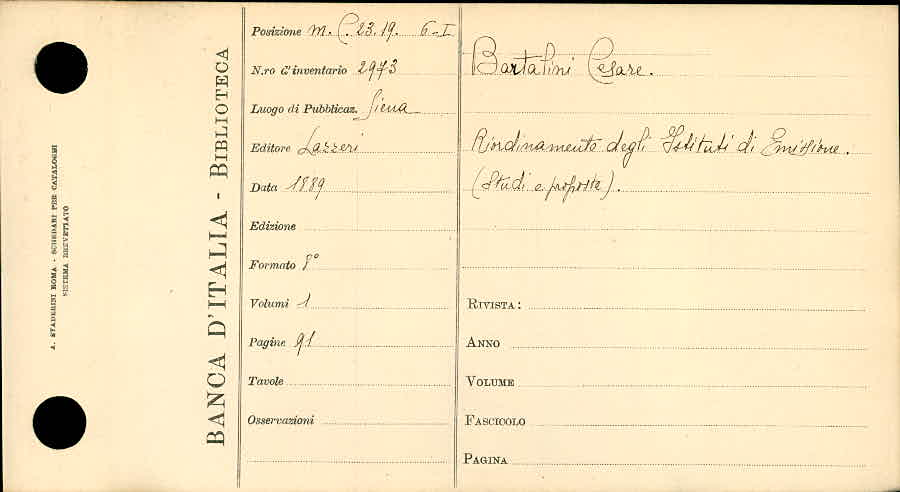 A. STADERINI ROMA - SCHEDARI PER CATALOGHI
SISTEMA BREVETTATO
BANCA D'ITALIA - BIBLIOTECA
Posizione m. C. 23.19. 6-I
N.ro d'inventario 2973
Luogo di Pubblicaz. Siena
Editore Lazzeri
Data 1889
Edizione
Formato 8°
Volumi 1
Pagine 91
Tavole
Osservazioni
Bartalini Cesare.
Riordinamento degli Istituti di Emissione.
(Studi e proposte).
RIVISTA:
ANNO
VOLUME
FASCICOLO
PAGINA